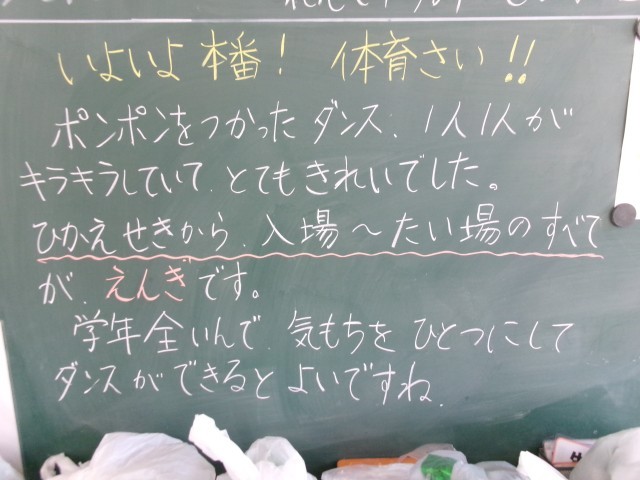 いよいよ本番! 体育さい!!
ポンポンをつかったダンス、1人1人が
キラキラしていて、とてもきれいでした。
ひかえせきから、入場〜たい場のすべて
が、えんぎです。
学年全いんで、気もちをひとつにして
ダンスができるとよいですね。